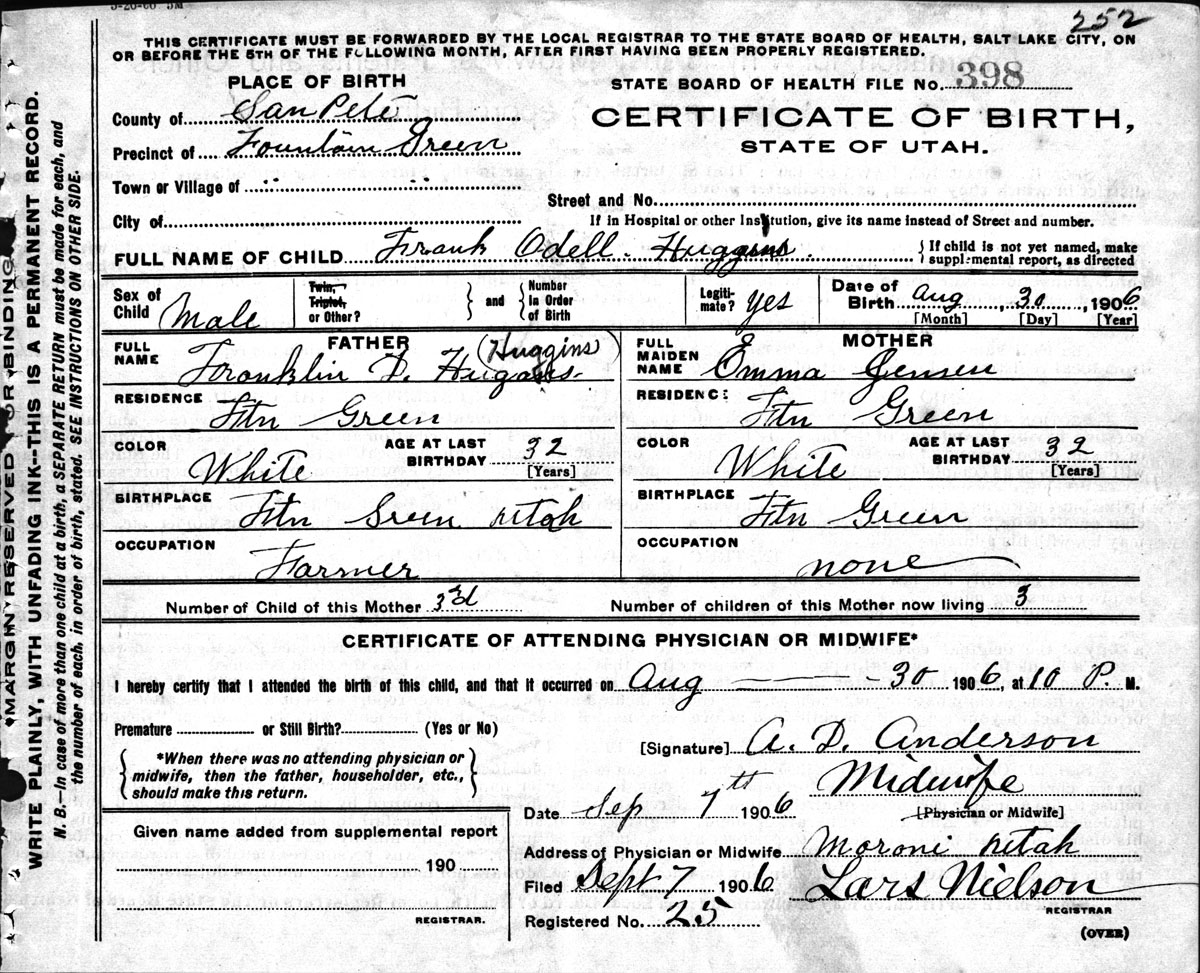 252
THIS CERTIFICATE MUST BE FORWARDED BY THE LOCAL REGISTRAR TO THE STATE BOARD OF HEALTH, SALT LAKE CITY, ON
OR BEFORE THE 5TH OF THE FOLLOWING MONTH, AFTER FIRST HAVING BEEN PROPERLY REGISTERED.
PLACE OF BIRTH
STATE BOARD OF HEALTH FILE No. 398
County of San Pete
CERTIFICATE OF BIRTH,
Precinct of Fountain Green
STATE OF UTAH.
Town or Village of
Street and No.
City of
If in Hospital or other Institution, give its name instead of Street and number.
FULL NAME OF CHILD Frank Odell. Huggins. } If child is not yet named, make supplemental report, as directed
Sex of Child Male
Twin, Triplet, or Other? } and { Number in Order of Birth
Legitimate? yes
Date of Birth Aug, 30, 1906
[Month] [Day] [Year]
FATHER
MOTHER
FULL NAME Franklin D. Huggins. (Huggins)
FULL MAIDEN NAME Emma E Jensen
RESIDENCE Ftn Green
RESIDENCE Ftn Green
COLOR White AGE AT LAST BIRTHDAY 32 [Years]
COLOR White AGE AT LAST BIRTHDAY 32 [Years]
BIRTHPLACE Ftn Green Utah
BIRTHPLACE Ftn Green
OCCUPATION Farmer
OCCUPATION none
Number of Child of this Mother 3rd
Number of children of this Mother now living 3
CERTIFICATE OF ATTENDING PHYSICIAN OR MIDWIFE*
I hereby certify that I attended the birth of this child, and that it occurred on Aug 30 1906, at 10 P. M.
Premature or Still Birth? (Yes or No)
[Signature] A. D. Anderson
{ *When there was no attending physician or midwife, then the father, householder, etc., should make this return. }
Midwife
[Physician or Midwife]
Date Sep 7th 1906
Given name added from supplemental report
190
REGISTRAR.
Address of Physician or Midwife Moroni Utah
Filed Sept 7 1906 Lars Nielson
REGISTRAR
Registered No. 25
(OVER)
MARGIN RESERVED FOR BINDING
WRITE PLAINLY, WITH UNFADING INK--THIS IS A PERMANENT RECORD.
N. B.—In case of more than one child at a birth, a SEPARATE RETURN must be made for each, and
the number of each, in order of birth, stated. SEE INSTRUCTIONS ON OTHER SIDE.